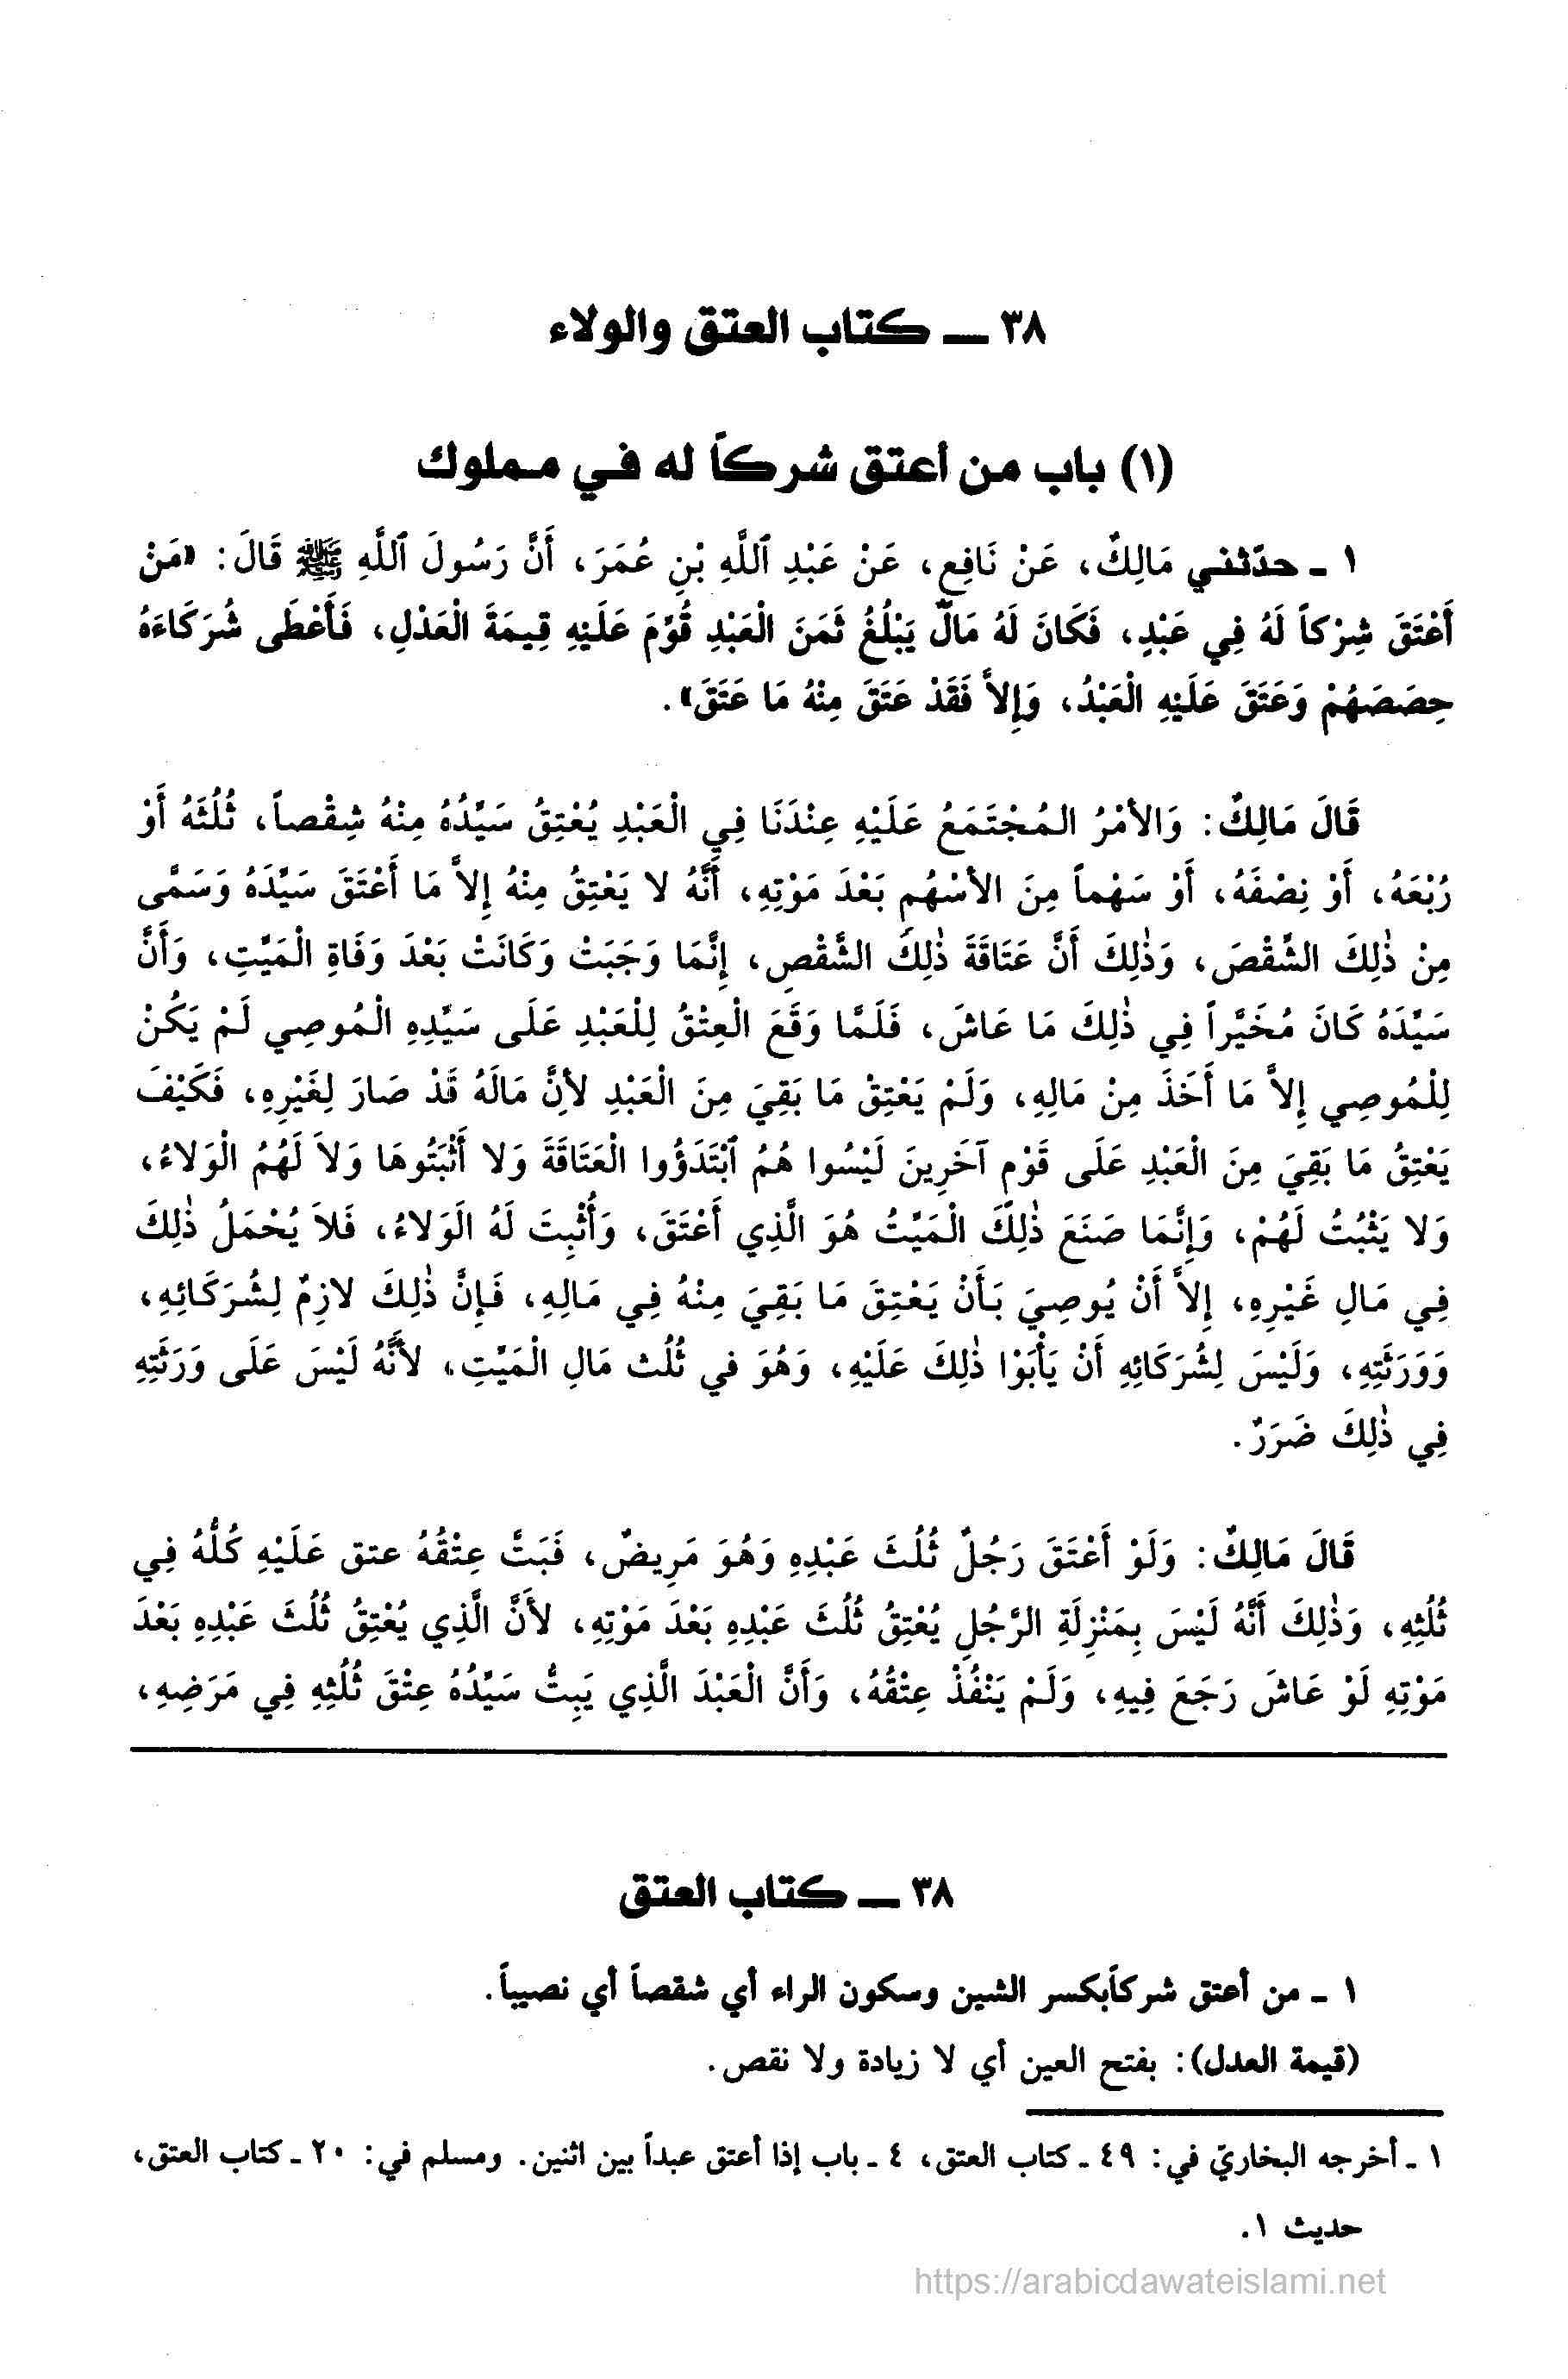 ٣٨ ـــ كتاب العتق والولاء
(١) باب من أعتق شركاً له في مملوك
١ ـ حدّثني مَالِكٌ، عَنْ نَافِعٍ، عَنْ عَبْدِ ٱللَّهِ بْنِ عُمَرَ، أَنَّ رَسُولَ ٱللَّهِ ﷺ قَالَ: «مَنْ
أَعْتَقَ شِرْكاً لَهُ فِي عَبْدٍ، فَكَانَ لَهُ مَالٌ يَبْلُغُ ثَمَنَ الْعَبْدِ قُوِّمَ عَلَيْهِ قِيمَةَ الْعَدْلِ، فَأَعْطَى شُرَكَاءَهُ
حِصَصَهُمْ وَعَتَقَ عَلَيْهِ الْعَبْدُ، وَإِلاَّ فَقَدْ عَتَقَ مِنْهُ مَا عَتَقَ».
قَالَ مَالِكٌ: وَالأمْرُ المُجْتَمَعُ عَلَيْهِ عِنْدَنَا فِي الْعَبْدِ يُعْتِقُ سَيِّدُهُ مِنْهُ شِقْصاً، ثُلُثَهُ أَوْ
رُبْعَهُ، أَوْ نِصْفَهُ، أَوْ سَهْماً مِنَ الأسْهُمِ بَعْدَ مَوْتِهِ، أَنَّهُ لا يَعْتِقُ مِنْهُ إِلاَّ مَا أَعْتَقَ سَيِّدَهُ وَسَمَّى
مِنْ ذٰلِكَ الشَّقْصَ، وَذٰلِكَ أَنَّ عَتَاقَةَ ذٰلِكَ الشَّقْصِ، إِنَّمَا وَجَبَتْ وَكَانَتْ بَعْدَ وَفَاةِ الْمَيِّتِ، وَأَنَّ
سَيِّدَهُ كَانَ مُخَيَّراً فِي ذٰلِكَ مَا عَاشَ، فَلَمَّا وَقَعَ الْعِتْقُ لِلْعَبْدِ عَلَى سَيِّدِهِ الْمُوصِي لَمْ يَكُنْ
لِلْمُوصِي إِلاَّ مَا أَخَذَ مِنْ مَالِهِ، وَلَمْ يَعْتِقْ مَا بَقِيَ مِنَ الْعَبْدِ لأنَّ مَالَهُ قَدْ صَارَ لِغَيْرِهِ، فَكَيْفَ
يَعْتِقُ مَا بَقِيَ مِنَ الْعَبْدِ عَلَى قَوْمٍ آخَرِينَ لَيْسُوا هُمُ ٱبْتَدَؤُوا الْعَتَاقَةَ وَلا أَثْبَتُوهَا وَلاَ لَهُمُ الْوَلاءُ،
وَلا يَثْبُتُ لَهُمْ، وَإِنَّمَا صَنَعَ ذٰلِكَ الْمَيِّتُ هُوَ الَّذِي أَعْتَقَ، وَأُثْبِتَ لَهُ الَوَلاءُ، فَلاَ يُحْمَلُ ذٰلِكَ
فِي مَالِ غَيْرِهِ، إِلاَّ أَنْ يُوصِيَ بَأَنْ يَعْتِقَ مَا بَقِيَ مِنْهُ فِي مَالِهِ، فَإِنَّ ذٰلِكَ لازِمٌ لِشُرَكَائِهِ،
وَوَرَثَتِهِ، وَلَيْسَ لِشُرَكَائِهِ أَنْ يَأْبَوْا ذٰلِكَ عَلَيْهِ، وَهُوَ في ثُلُث مَالِ الْمَيِّتِ، لأَنَّهُ لَيْسَ عَلَى وَرَثَتِهِ
فِي ذٰلِكَ ضَرَرٌ.
قَالَ مَالِكٌ: وَلَوْ أَعْتَقَ رَجُلٌ ثُلُثَ عَبْدِهِ وَهُوَ مَرِيضٌ، فَبَتَّ عِتْقُهُ عتق عَلَيْهِ كُلُّهُ فِي
ثُلُثِهِ، وَذٰلِكَ أَنَّهُ لَيْسَ بِمَنْزِلَةِ الرَّجُلِ يُعْتِقُ ثُلُثَ عَبْدِهِ بَعْدَ مَوْتِهِ، لأَنَّ الَّذِي يُعْتِقُ ثُلُثَ عَبْدِهِ بَعْدَ
مَوْتِهِ لَوْ عَاشَ رَجَعَ فِيهِ، وَلَمْ يَنْفُذْ عِتْقُهُ، وَأَنَّ الْعَبْدَ الَّذِي يَبِتُّ سَيِّدُهُ عِتْقَ ثُلُثِهِ فِي مَرَضِهِ،
٣٨ ـــ كتاب العتق
١ ـ من أعتق شركاًبكسر الشين وسكون الراء أي شقصاً أي نصيباً.
(قيمة العدل): بفتح العين أي لا زيادة ولا نقص.
١ ـ أخرجه البخاريّ في: ٤٩ ـ كتاب العتق، ٤ ـ باب إذا أعتق عبداً بين اثنين. ومسلم في: ٢٠ ـ كتاب العتق،
حديث ١.
https://arabicdawateislami.net